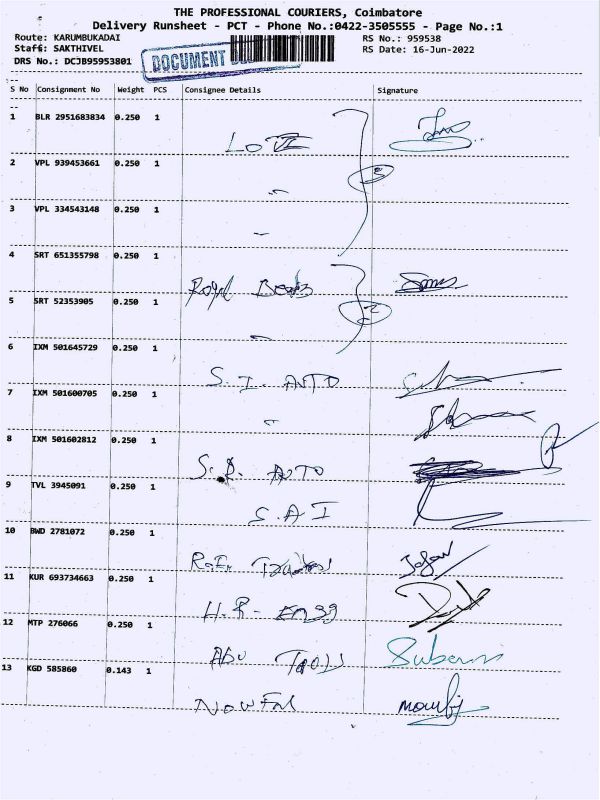 THE PROFESSIONAL COURIERS, Coimbatore
Delivery Runsheet - PCT - Phone No.:0422-3505555 - Page No.:1
Route: KARUMBUKADAI RS No.: 959538
Staff: SAKTHIVEL RS Date: 16-Jun-2022
DRS No.: DCJB95953801 DOCUMENT
S No Consignment No Weight PCS Consignee Details Signature
1 BLR 2951683834 0.250 1
2 VPL 939453661 0.250 1
3 VPL 334543148 0.250 1
4 SRT 651355798 0.250 1
Royal
5 SRT 52353905 0.250 1
6 IXM 501645729 0.250 1
S.I. AUTO
7 IXM 501600705 0.250 1
8 IXM 501602812 0.250 1
S.R. AUTO
9 TVL 3945091 0.250 1
S.A.I
10 BWD 2781072 0.250 1
11 KUR 693734663 0.250 1
H.R-
12 MTP 276066 0.250 1
Abu
13 KGD 585860 0.143 1
Nowfal